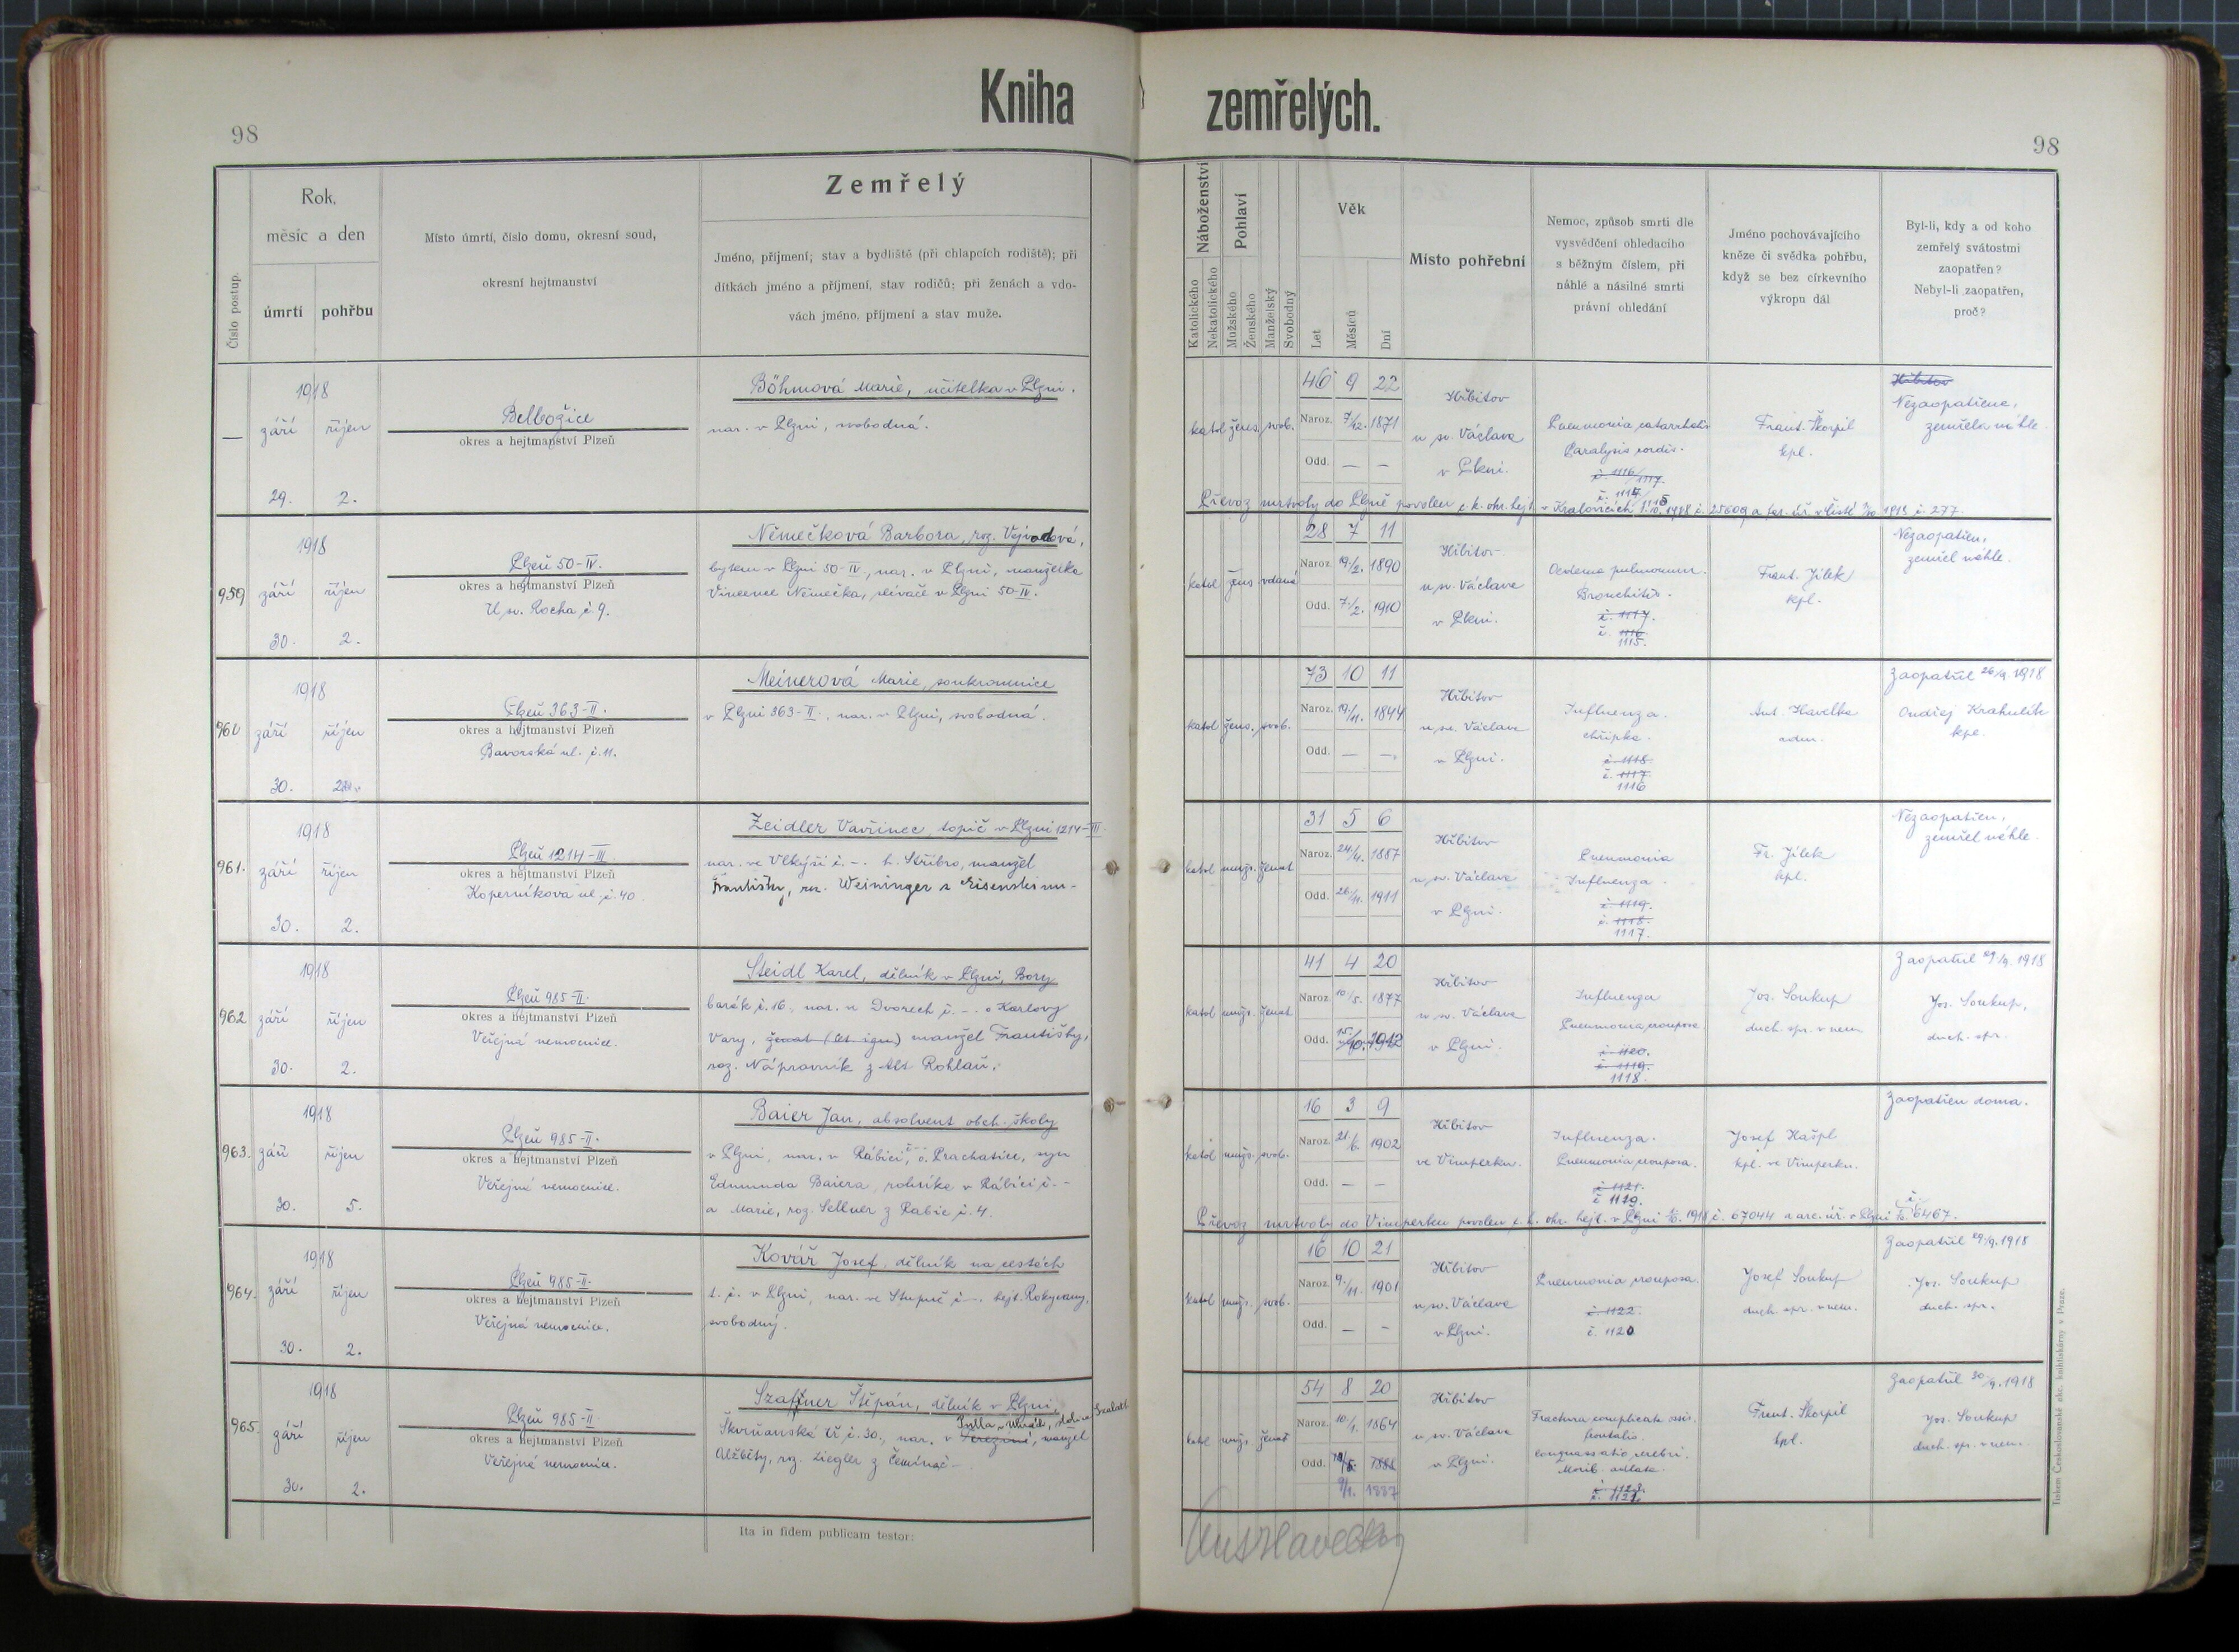 Kniha zemřelých.
98
98
Číslo postup.
Rok,
měsíc a den
úmrtí
pohřbu
Místo úmrtí, číslo domu, okresní soud,
okresní hejtmanství
Zemřelý
Jméno, příjmení; stav a bydliště (při chlapcích rodiště); při
dítkách jméno a příjmení, stav rodičů; při ženách a vdo-
vách jméno, příjmení a stav muže.
Náboženství
Katolického
Nekatolického
Pohlaví
Mužského
Ženského
Manželský
Svobodný
Věk
Let
Měsíců
Dní
Místo pohřební
Nemoc, způsob smrti dle
vysvědčení ohledacího
s běžným číslem, při
náhlé a násilné smrti
právní ohledání
Jméno pochovávajícího
kněze či svědka pohřbu,
když se bez církevního
výkropu dál
Byl-li, kdy a od koho
zemřelý svátostmi
zaopatřen?
Nebyl-li zaopatřen,
proč?
—
1918
září říjen
29. 2.
okres a hejtmanství Plzeň
Böhmová Marie, učitelka v Plzni.
nar. v Plzni, svobodná.
katol. žens. svob.
46 9 22
Naroz. 7/12. 1871
Odd. — —
Hřbitov
u sv. Václava
v Plzni.
Pneumonia catarrhalis
Paralysis cordis.
č. 1116/1117.
Frant. Škorpil
kpl.
Hřbitov
Nezaopatřena,
zemřela náhle.
Převoz mrtvoly do Plzně povolen c. k. okr. hejt. v Kralovicích
959
1918
září říjen
30. 2.
Plzeň 50-IV.
okres a hejtmanství Plzeň
U sv. Rocha č. 9.
Němečková Barbora, roz. Vejvodová,
bytem v Plzni 50-IV., nar. v Plzni, manželka
Vincence Němečka, v Plzni 50-IV.
katol. žens. vdaná
28 7 11
Naroz. 19/2. 1890
Odd. 7/2. 1910
Hřbitov
u sv. Václava
v Plzni.
Oedema pulmonum.
Bronchitis.
č. 1117.
č. 1116
1115.
Frant. Jílek
kpl.
Nezaopatřen,
zemřel náhle.
960
1918
září říjen
30. 2.
Plzeň 363-II.
okres a hejtmanství Plzeň
Bavorská ul. č. 11.
Meinerová Marie, soukromnice
v Plzni 363-II., nar. v Plzni, svobodná.
katol. žens. svob.
73 10 11
Naroz. 19/11. 1844
Odd. — —.
Hřbitov
u sv. Václava
v Plzni.
Influenza.
chřipka.
č. 1118.
č. 1117.
1116
Ant. Havelka
adm.
Zaopatřil 26/9. 1918
Ondřej Krahulík
kpl.
961.
1918
září říjen
30. 2.
Plzeň 1214-III.
okres a hejtmanství Plzeň
Koperníkova ul. č. 40.
Zeidler Vavřinec, topič v Plzni 1214-III.
nar. ve Vlkýši č. -. h. Stříbro, manžel
Františky, roz. Weininger z
katol. mužs. ženat
31 5 6
Naroz. 24/4. 1887
Odd. 26/11. 1911
Hřbitov
u sv. Václava
v Plzni.
Pneumonia
Influenza.
č. 1119.
č. 1118.
1117.
Fr. Jílek
kpl.
Nezaopatřen,
zemřel náhle.
962
1918
září říjen
30. 2.
Plzeň 985-II.
okres a hejtmanství Plzeň
Veřejná nemocnice.
Steidl Karel, dělník v Plzni, Bory
barák č. 16., nar. v Dvorech č. -. o. Karlovy
Vary, ženat manžel Františky,
roz. Nápravník z Alt Rohlau.
katol. mužs. ženat
41 4 20
Naroz. 10/5. 1877
Odd. 1912
Hřbitov
u sv. Václava
v Plzni.
Influenza
Pneumonia crouposa
č. 1120.
č. 1119.
1118.
Jos. Soukup
duch. spr. v nem
Zaopatřil 29/9. 1918
Jos. Soukup,
duch. spr.
963.
1918
září říjen
30. 5.
Plzeň 985-II.
okres a hejtmanství Plzeň
Veřejná nemocnice.
Baier Jan, absolvent obch. školy
v Plzni, nar. v Rábici, č. - o. Prachatice, syn
Edmunda Baiera, rolníka v Rábici č. -
a Marie, roz. Sellner z Rabic č. 4.
katol. mužs. svob.
16 3 9
Naroz. 21/6. 1902
Odd. — —
Hřbitov
ve Vimperku.
Influenza.
Pneumonia crouposa.
č. 1121.
č. 1119.
Josef Kašpl
kpl. ve Vimperku.
Zaopatřen doma.
Převoz mrtvoly do Vimperku povolen c. k. okr. hejt. v Plzni 1918 č. 67044 v Plzni č. 6467.
964.
1918
září říjen
30. 2.
Plzeň 985-II.
okres a hejtmanství Plzeň
Veřejná nemocnice.
Kovář Josef, dělník na cestách
t. č. v Plzni, nar. ve Stupně č. -. hejt. Rokycany,
svobodný.
katol. mužs. svob.
16 10 21
Naroz. 9/11. 1901
Odd. — —
Hřbitov
u sv. Václava
v Plzni.
Pneumonia crouposa.
č. 1122.
č. 1120
Josef Soukup
duch. spr. v nem.
Zaopatřil 29/9. 1918
Jos. Soukup
duch. spr.
965.
1918
září říjen
30. 2.
Plzeň 985-II
okres a hejtmanství Plzeň
Veřejná nemocnice.
Szaffner Štěpán, dělník v Plzni,
Škvrňanská tř. č. 30., nar. v manžel
Alžběty, roz. Ziegler z
katol. mužs. ženat
54 8 20
Naroz. 10/1. 1864
Odd. 1888
9/1. 1887
Hřbitov
u sv. Václava
v Plzni.
Fractura complicata ossis.
frontalis.
conquassatio cerebri.
č. 1123.
č. 1121.
Frant. Škorpil
kpl.
Zaopatřil 30/9. 1918
Jos. Soukup
duch. spr. v nem.
Ita in fidem publicam testor:
Ant Havelka
Tiskem Českoslovanské akc. knihtiskárny v Praze.